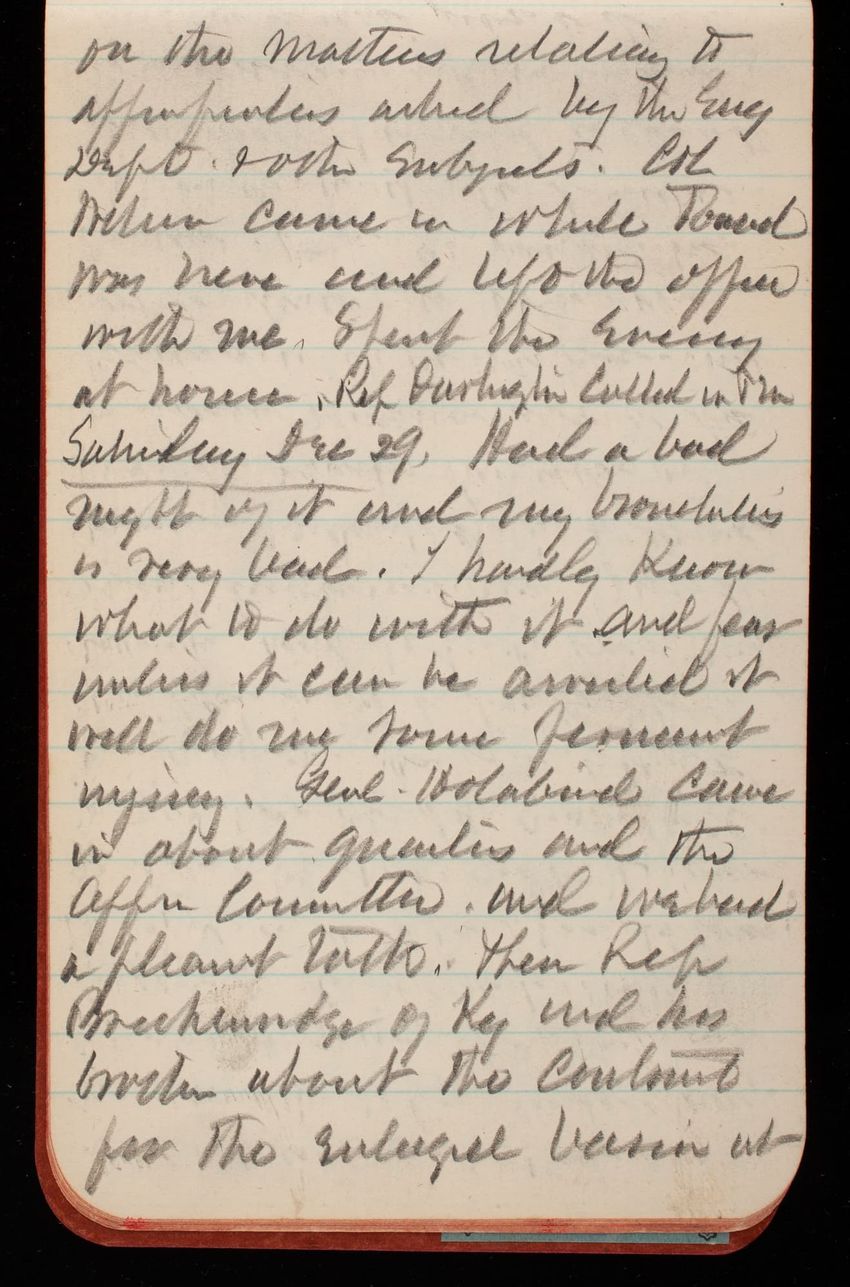 on the matters relating to
appropriation asked by the Eng
Dept. & other subjects. Col
Wilson came in while Board
was here and left the office
with me. Spent the Evening
at home. Rep Darlington called in
Saturday Dec 29. Had a bad
night of it and my bronchitis
is very bad. I hardly know
what to do with it and fear
unless it can be avoided it
will do me some permant
injury. Genl. Holabird came
in about quarters and the
Appn Committee. and we had
a pleasant talk. Then Rep
Breckenridge of Ky and his
brother about the contract
for the enlarged basin at